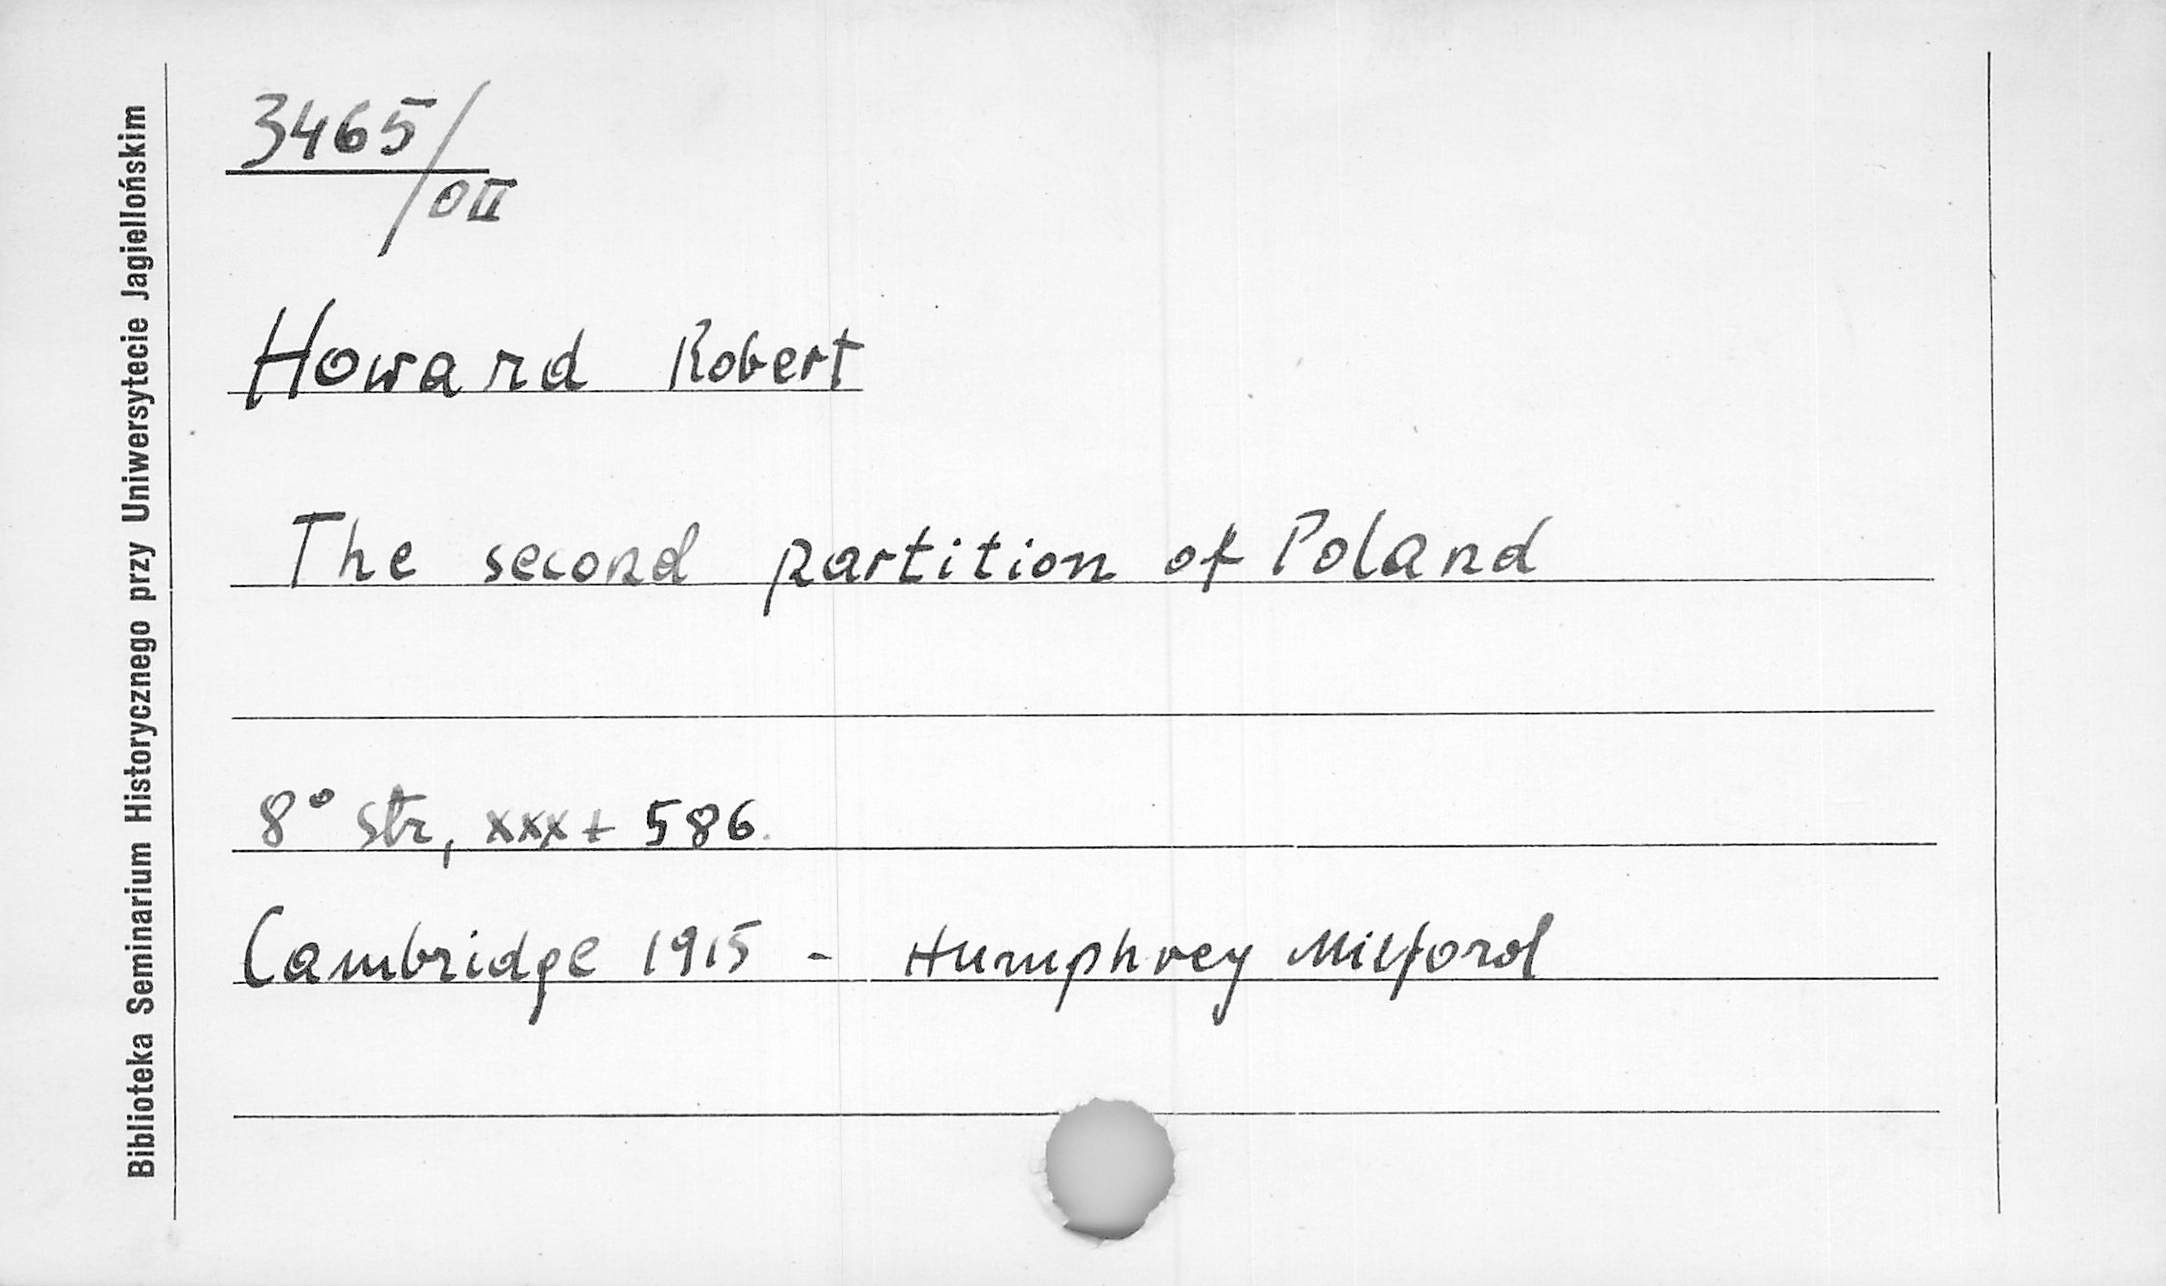 3465/
/OII
Howard Robert
The second partition of Poland
8° str, xxx + 586.
Cambridge 1915 - Humphrey Milford
Biblioteka Seminarium Historycznego przy Uniwersytecie Jagiellońskim